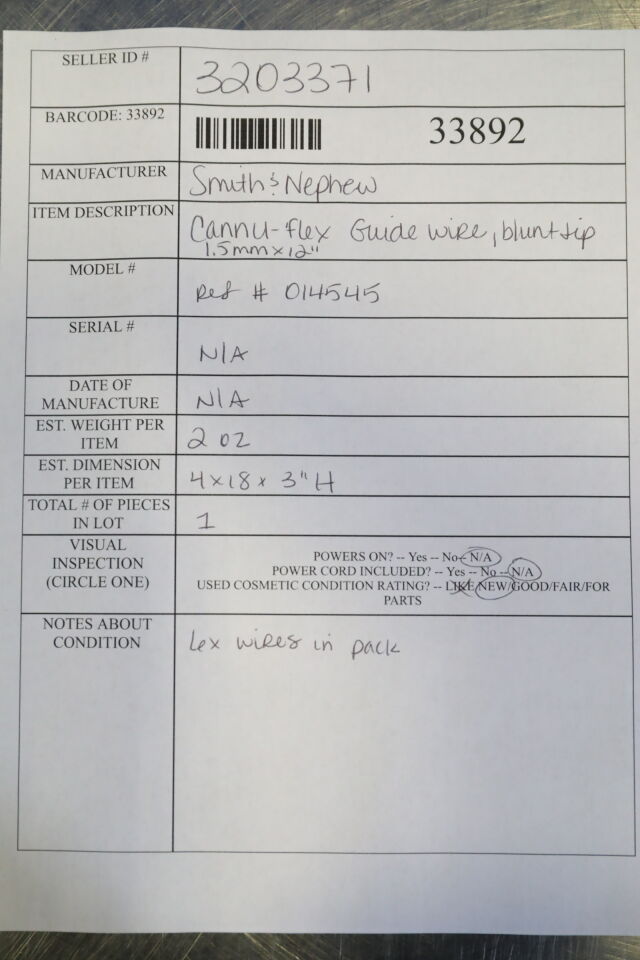 SELLER ID #
3203371
BARCODE: 33892
33892
MANUFACTURER
Smith & Nephew
ITEM DESCRIPTION
Cannu-flex Guide wire, blunt tip
1.5mm x 12"
MODEL #
Ref # 014545
SERIAL #
N/A
DATE OF
MANUFACTURE
N/A
EST. WEIGHT PER
ITEM
2 oz
EST. DIMENSION
PER ITEM
4x18x 3"H
TOTAL # OF PIECES
IN LOT
1
VISUAL
INSPECTION
(CIRCLE ONE)
POWERS ON? -- Yes -- No-- N/A
POWER CORD INCLUDED? -- Yes -- No -- N/A
USED COSMETIC CONDITION RATING? -- LIKE NEW/GOOD/FAIR/FOR
PARTS
NOTES ABOUT
CONDITION
wires in pack